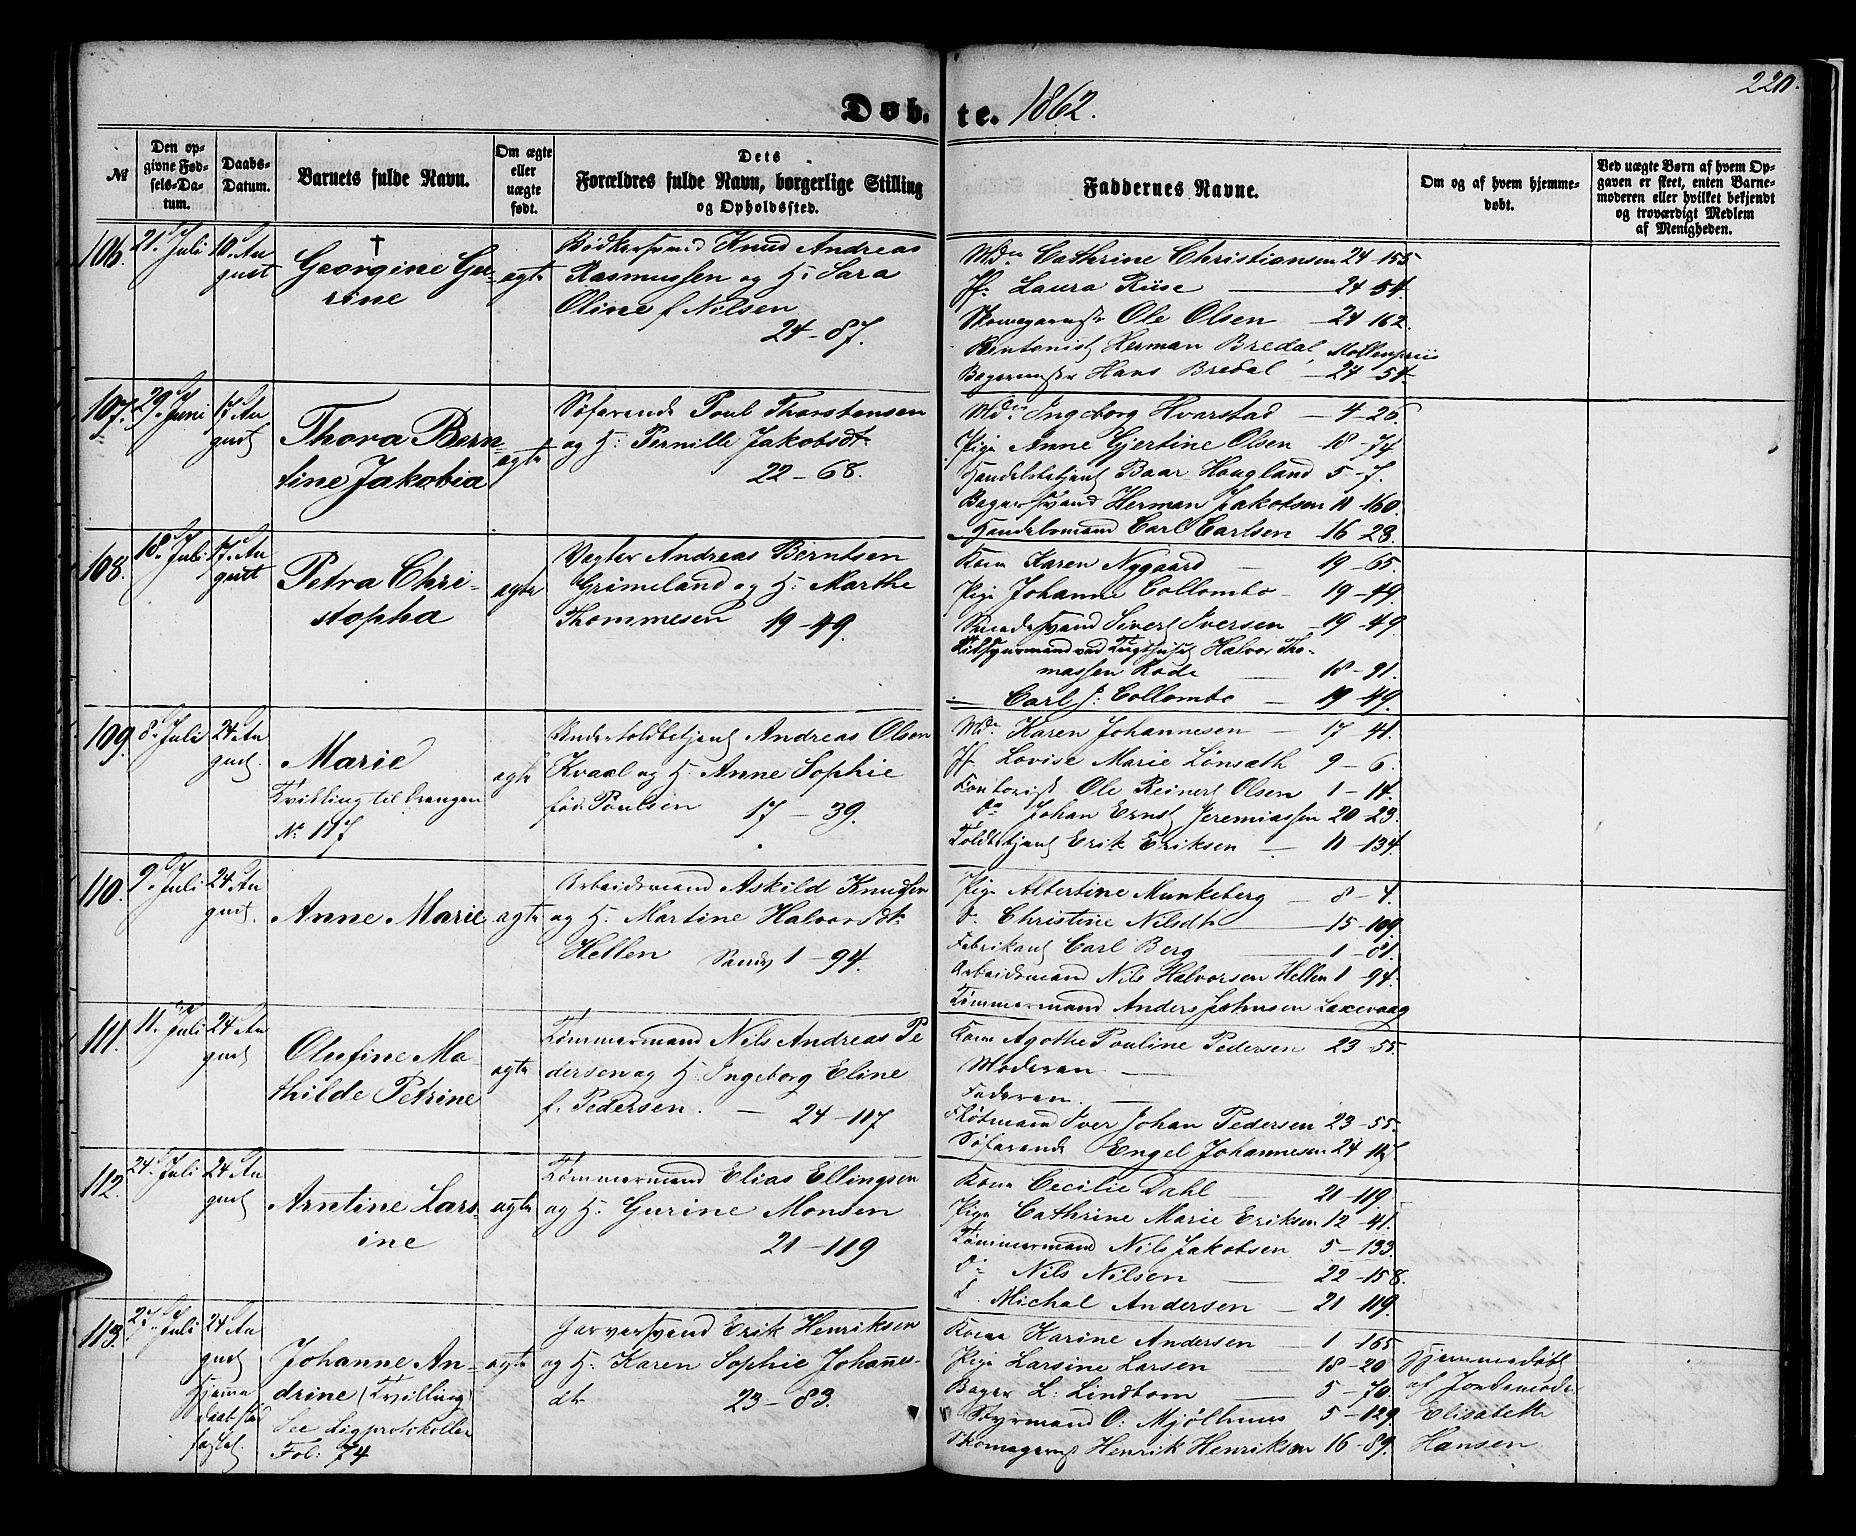 220.
Døbte. 1862.
№
Den opgivne Fødsels-Datum.
Daabs-Datum.
Barnets fulde Navn.
Om ægte eller uægte født.
Dets Forældres fulde Navn, borgerlige Stilling og Opholdssted.
Faddernes Navne.
Om og af hvem hjemmedøbt.
Ved uægte Børn af hvem Opgaven er skeet, enten Barnemoderen eller hvilket bekjendt og troværdigt Medlem af Menigheden.
106. 21. Juli 10. August
Georgine Gerine
ægte
Bødkersvend Knud Andreas
Rasmussen og H: Sara
Oline f Nilsen
24-87.
Md. Cathrine Christiansen 24-155
Jf. Laura Riise 24-54.
Ole Olsen 24-162.
Herman Bredal, Møllenpriis
Bagermstr Hans Bredal 24-54
107. 29. Juni 17. August
Thora Berntine Jakobia
ægte
Søfarende Poul Thorstensen
og H: Pernille Jakobsdt
22-68.
Md. Ingeborg Hvarstad 4-26
Pige Anne Gjertine Olsen 18-74
Handelsbetjent Baar Haugland 5-7.
Bagersvend Herman Jakobsen 11-160.
Handelsmand Carl Carlsen 16-28.
108. 18. Juli 17. August
Petra Christopha
ægte
Vægter Andreas Berntsen
Grimeland og H: Marthe
Thommesen 19-49.
Kone Karen Nygaard 19-65
Pige Johanne Collombo 19-49.
Smedesvend Sivert Iversen 19-49.
ved Tugthuset Halvor Thomassen Rode 18-91.
Carl J: Collombo 19-49.
109. 8. Juli 24 August.
Marie
Tvilling til Drengen
No 117
ægte
Undertoldbetjent Andreas Olsen
Kvaal og H: Anne Sophie
fød: Poulsen 17-39.
Md. Karen Johannesen 17-41.
Jf. Lovise Marie Lønsæth 9-6.
Kontorist Ole Reinert Olsen 1-14.
do Johan Ernst Jeremiassen 20-23.
Toldbetjent Erik Eriksen 11-134.
110. 9. Juli 24 August.
Anne Marie
ægte
Arbeidsmand Askild Knudsen
og H: Martine Halvorsdt
Hellen Sandv 1-94.
Pige Albertine Munkeberg 8-4.
d. Christine Nilsdt 15-109.
Fabrikant Carl Berg 1-81.
Arbeidsmand Nils Halvorsen Hellen 1-94.
Tømmermand Anders Johnsen Laxevaag
111. 11. Juli 24 August
Olufine Mathilde Petrine
ægte
Tømmermand Nils Andreas Pedersen og H: Ingeborg Eline
f. Pedersen. 24-117
Kone Agothe Pouline Pedersen 23-55.
Moderen
Faderen.
Iver Johan Pedersen 23-55.
Søfarende Engel Johannesen 24-117.
112. 24. Juli 24 August
Arntine Larsine
ægte
Tømmermand Elias Ellingsen
og H. Gurine Monsen
21-119
Kone Cecilie Dahl 21-119.
Pige Cathrine Marie Eriksen 12-41.
Tømmermand Nils Jakobsen 5-133.
do Nils Nilsen 22-158.
d. Michal Andersen 21-119.
113. 27. Juli 24 August
Hjemmedaab stadfæstet.
Johanne Andrine (Tvilling)
See Ligprotokollen
Fol: 74
ægte
Garversvend Erik Henriksen
og H. Karen Sophie Johannesdt 23-83.
Kone Karine Andersen 1-165
Pige Larsine Larsen 18-20
Bager L. Lindbom 5-70.
Styrmand O. Mjølhuus 5-129.
Skomagermst Henrik Henriksen 16-89.
Hjemmedøbt
af Jordemoder
Elisabeth
Hansen